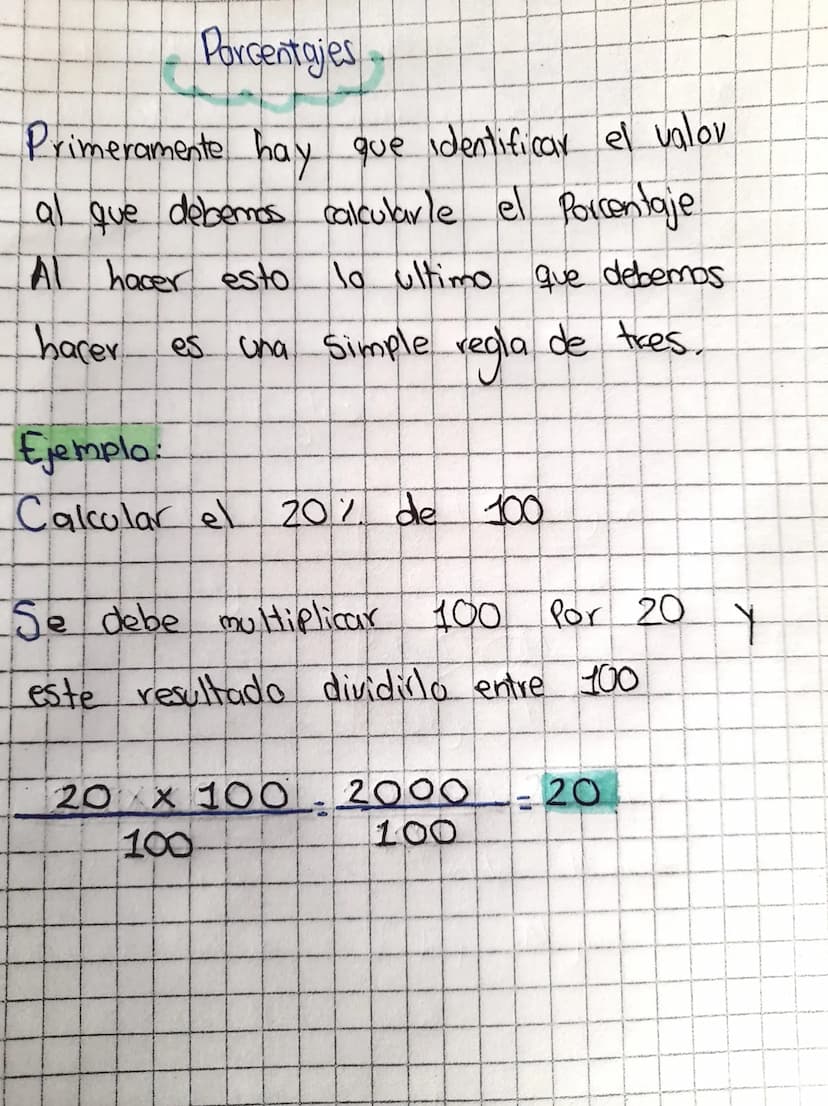 Porcentajes
Primeramente hay que identificar el valor
al que debemos calcularle el Porcentaje
Al hacer esto lo ultimo que debemos
hacer es una simple regla de tres.
Ejemplo:
Calcular el 20% de 100
Se debe multiplicar 100 Por 20 y
este resultado dividirlo entre 100
20 x 100 = 2000 = 20
100 100